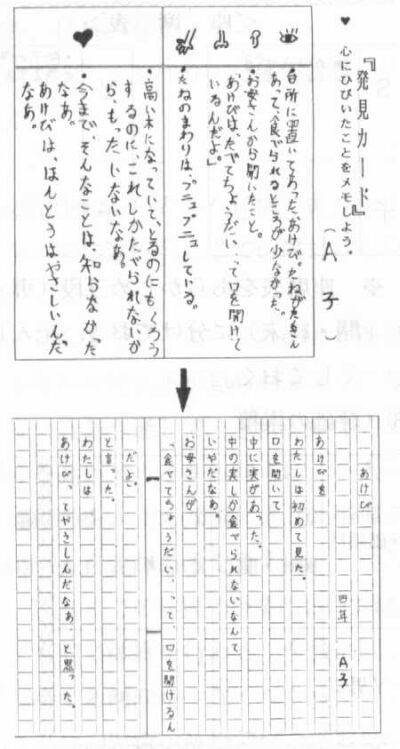 『発見カード』
♥ 心にひびいたことをメモしよう。
（A子）
・台所に置いてあった、あけび。たねがたくさん
あって、食べられるところが少なかった。
・お母さんから聞いたこと。
「あけびは、たべてちょうだい、って口を開けて
いるんだよ」
・たねのまわりは、ブニュブニュしてる。
・高い木になっていて、とるのにもくろう
するのに、これしかたべられないか
ら、もったいないなあ。
・今まで、そんなことは、知らなかった
なあ。
あけびは、ほんとうはやさしいんだ
なあ。
あけび
四年 A子
あけびを
わたしは初めて見た。
口を開いて
中に実があった。
中の実しか食べられないなんて
いやだなあ。
お母さんが
「食べてちょうだい、って、口を開けるん
だよ」
と言った。
わたしは
あけびってやさしんだなあ、と思った。